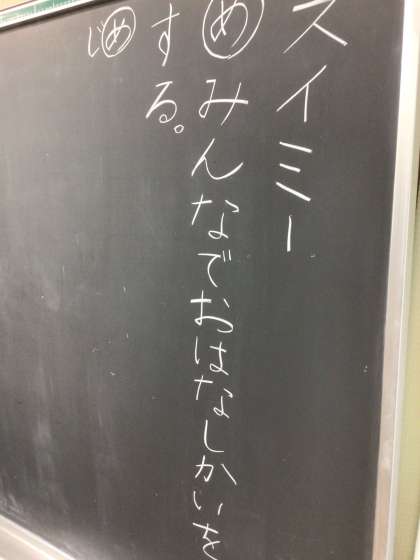 スイミー
めみんなでおはなしかいを
する。
じめ